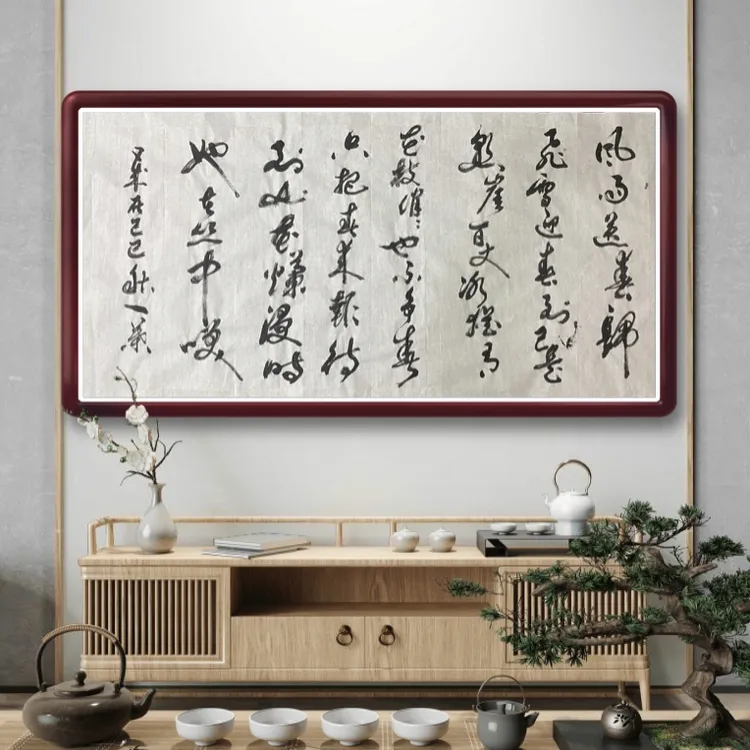 風雨送春歸
飛雪迎春到已是
懸崖百丈冰猶有
花枝俏〻也不争春
只把春来報待
到山花爛漫時
她在丛中咲
己巳秋一葉